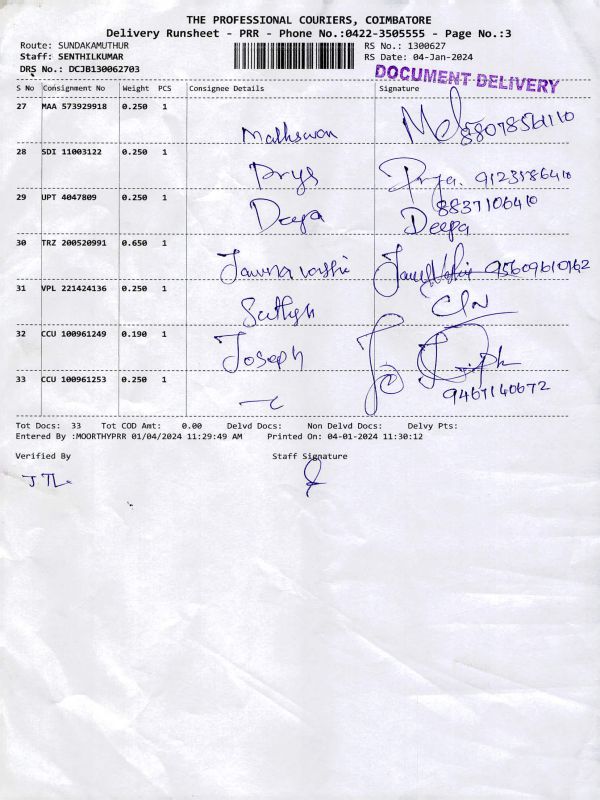 THE PROFESSIONAL COURIERS, COIMBATORE
Delivery Runsheet - PRR - Phone No.:0422-3505555 - Page No.:3
Route: SUNDAKAMUTHUR RS No.: 1300627
Staff: SENTHILKUMAR RS Date: 04-Jan-2024
DRS No.: DCJB130062703
DOCUMENT DELIVERY
S No Consignment No Weight PCS Consignee Details Signature
27 MAA 573929918 0.250 1
28 SDI 11003122 0.250 1
Priya. 9123586410
29 UPT 4047809 0.250 1 Deepa 8837106410
Deepa
30 TRZ 200520991 0.650 1
31 VPL 221424136 0.250 1
32 CCU 100961249 0.190 1 Joseph
33 CCU 100961253 0.250 1 9467140672
Tot Docs: 33 Tot COD Amt: 0.00 Delvd Docs: Non Delvd Docs: Delvy Pts:
Entered By :MOORTHYPRR 01/04/2024 11:29:49 AM Printed On: 04-01-2024 11:30:12
Verified By Staff Signature